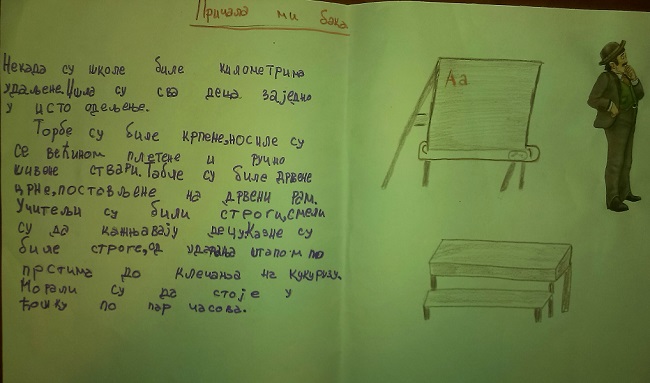 Причала ми бака
Некада су школе биле километрима
удаљене.Ишла су сва деца заједно
у исто одељење.
Торбе су биле крпене,носиле су
се већином плетене и ручно
шивене ствари.Табле су биле дрвене
црне,постовљене на дрвени рам.
Учитељи су били строги,смели
су да кажњавају децу.Казне су
биле строге,од ударања штапом по
прстима до клечања на кукурузу.
Морали су да стоје у
ћошку по пар часова.
Аа